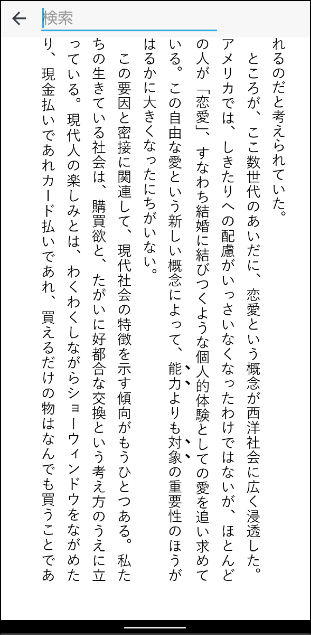 検索
れるのだと考えられていた。
ところが、ここ数世代のあいだに、恋愛という概念が西洋社会に広く浸透した。
アメリカでは、しきたりへの配慮がいっさいなくなったわけではないが、ほとんど
の人が「恋愛」、すなわち結婚に結びつくような個人的体験としての愛を追い求めて
いる。この自由な愛という新しい概念によって、能力よりも対象の重要性のほうが
はるかに大きくなったにちがいない。
この要因と密接に関連して、現代社会の特徴を示す傾向がもうひとつある。私た
ちの生きている社会は、購買欲と、たがいに好都合な交換という考え方のうえに立
っている。現代人の楽しみとは、わくわくしながらショーウィンドウをながめた
り、現金払いであれカード払いであれ、買えるだけの物はなんでも買うことであ